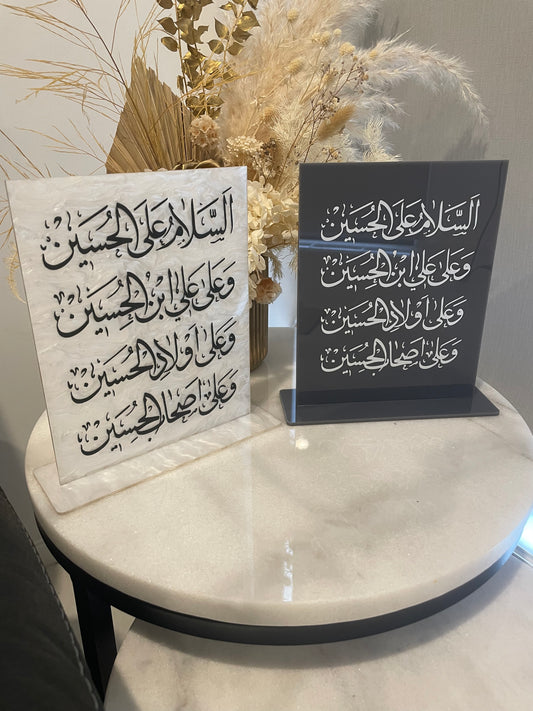 اَلسَّلَامُ عَلَى الحُسَيْن
وَعَلى عَلِيِّ ابْنِ الحُسَيْن
وَعَلى اَوْلادِ الحُسَيْن
وَعَلى اَصْحَابِ الحُسَيْن
اَلسَّلَامُ عَلَى الحُسَيْن
وَعَلى عَلِيِّ ابْنِ الحُسَيْن
وَعَلى اَوْلادِ الحُسَيْن
وَعَلى اَصْحَابِ الحُسَيْن